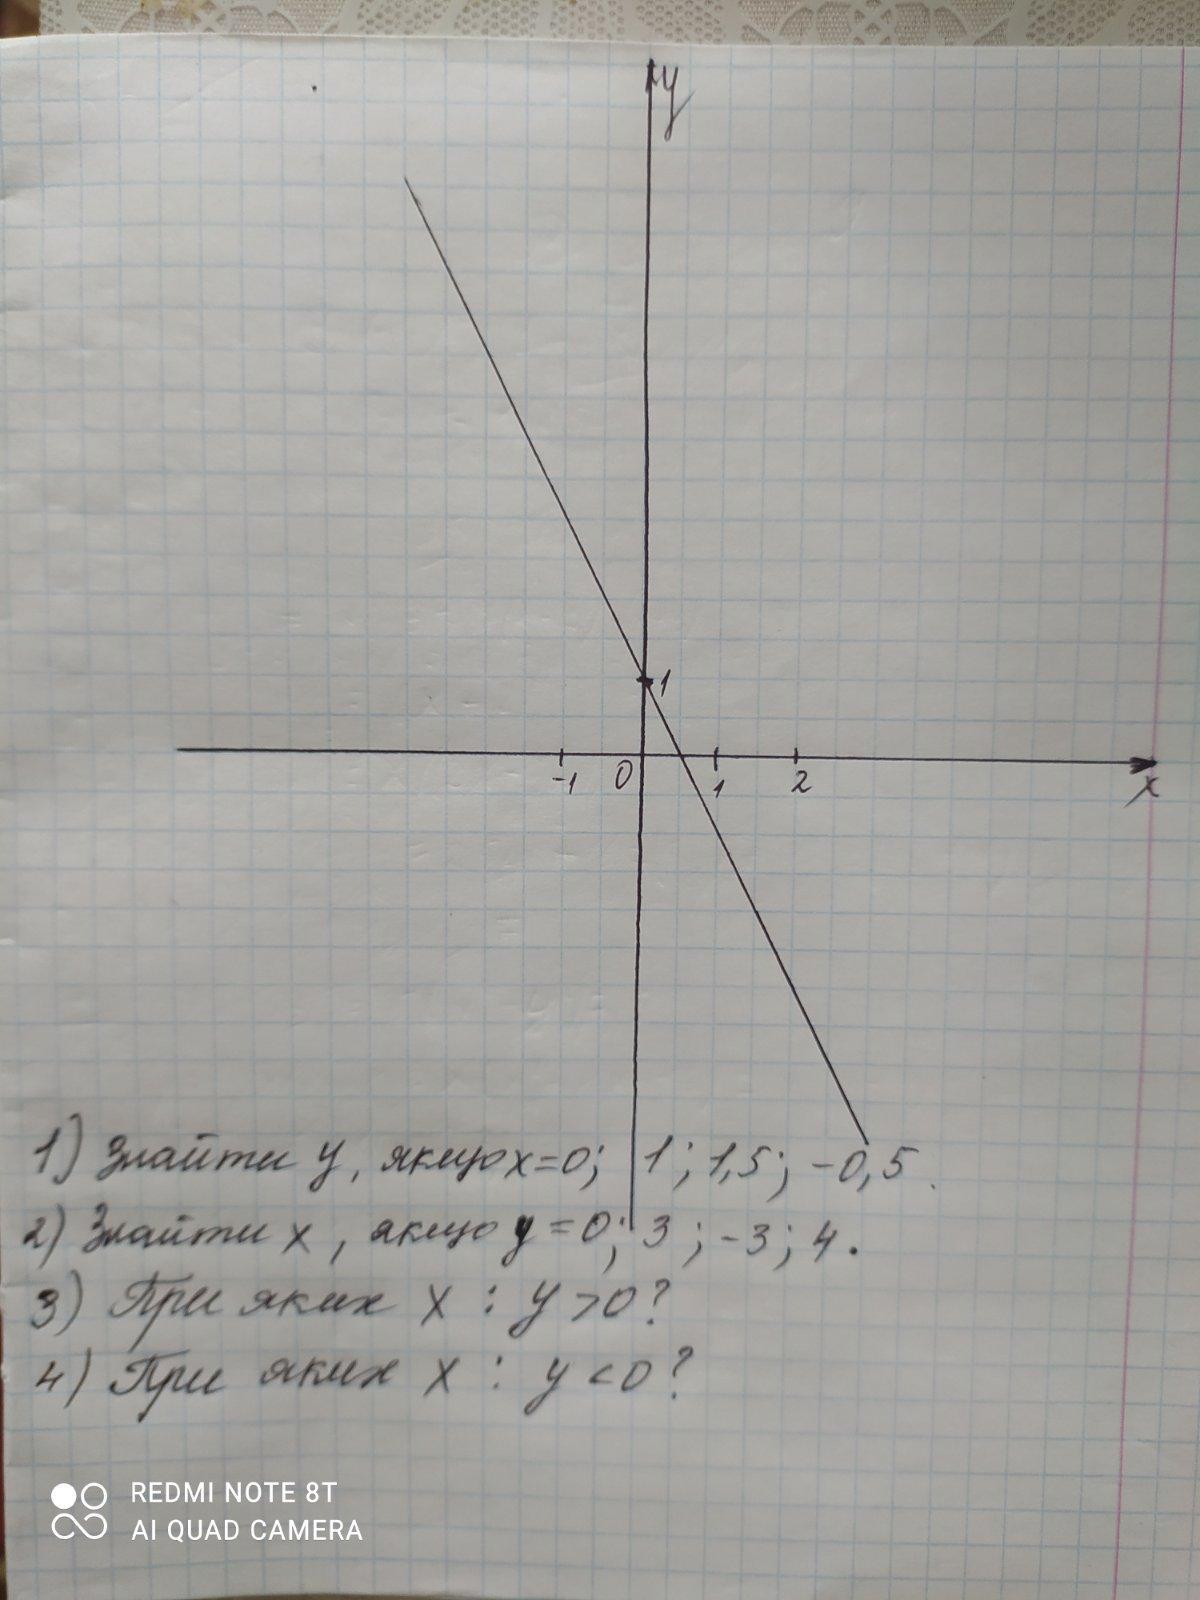 y
1
-1 0 1 2
x
1) Знайти y, якщо x=0; 1; 1,5; -0,5.
2) Знайти x, якщо y=0; 3; -3; 4.
3) При яких x : y>0?
4) При яких x : y<0?
REDMI NOTE 8T
AI QUAD CAMERA